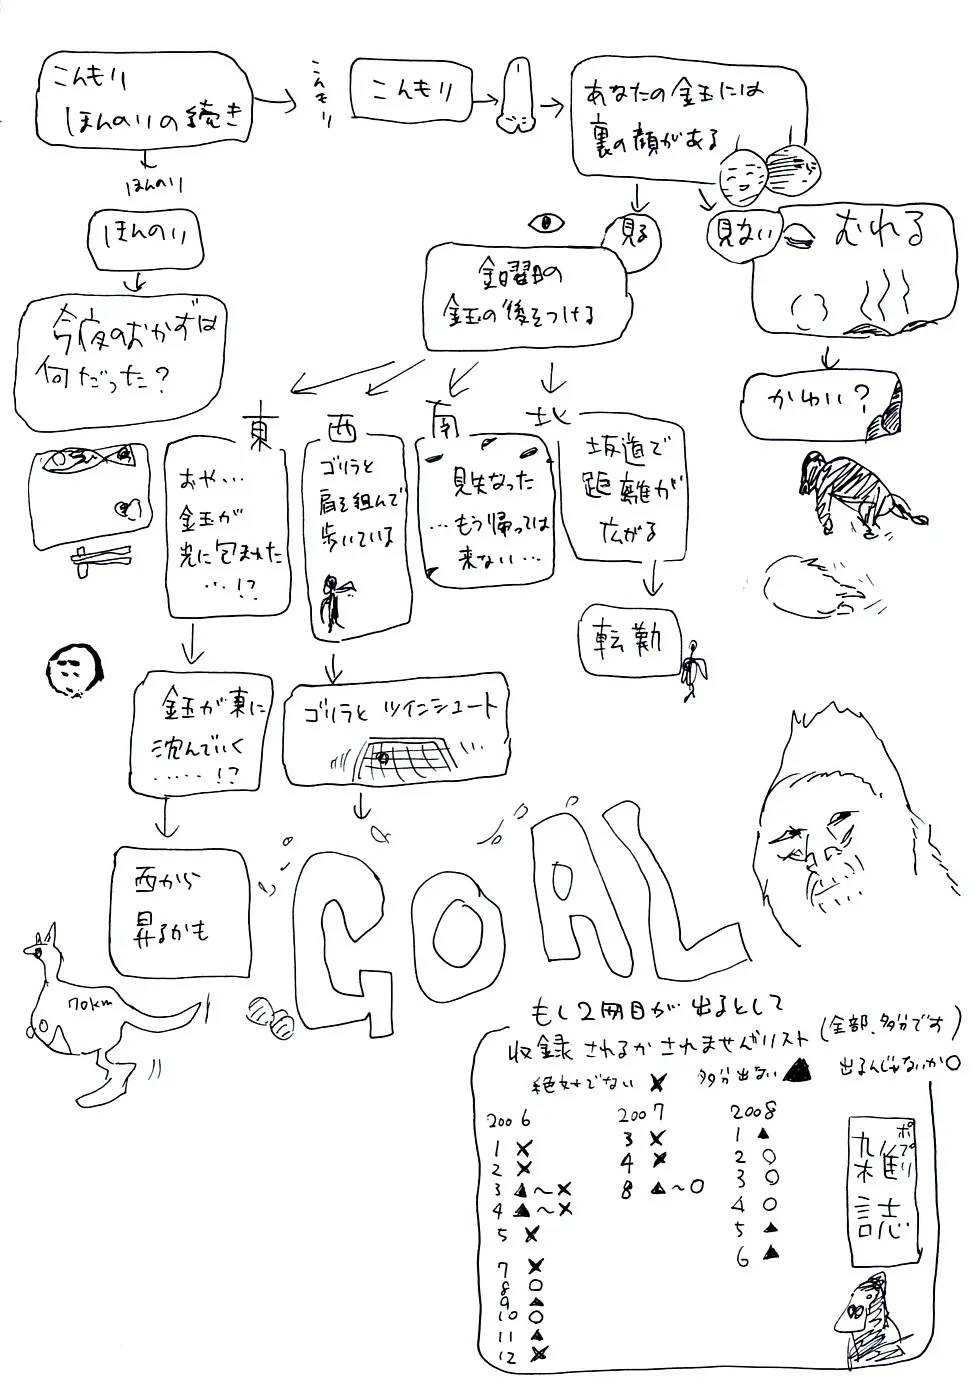 こんもり
ほんのりの続き
こんもり
こんもり
あなたの金玉には
裏の顔がある
ほんのり
ほんのり
今夜のおかずは
何だった?
見る
見ない
むれる
かわい?
金曜日の
金玉の後をつける
東
おや…
金玉が
光に包まれた
…!?
金玉が東に
沈んでいく
……!?
西から
昇るかも
西
ゴリラと
肩を組んで
歩いている
ゴリラと ツインシュート
GOAL
南
見失なった
…もう帰っては
来ない…
北
坂道で
距離が
広がる
転勤
70km
もし2冊目が出るとして
収録されるかされませんがリスト(全部、多分です)
絶対でない ✕ 多分出ない ▲ 出るんじゃないか○
2006
1 ✕
2 ✕
3 ▲~✕
4 ▲~✕
5 ✕
7 ✕
8 ○
9 ▲
10 ○
11 ▲
12 ✕
2007
3 ✕
4 ✕
8 ▲~○
2008
1 ▲
2 ○
3 ○
4 ○
5 ▲
6 ▲
ポプリ
雑誌